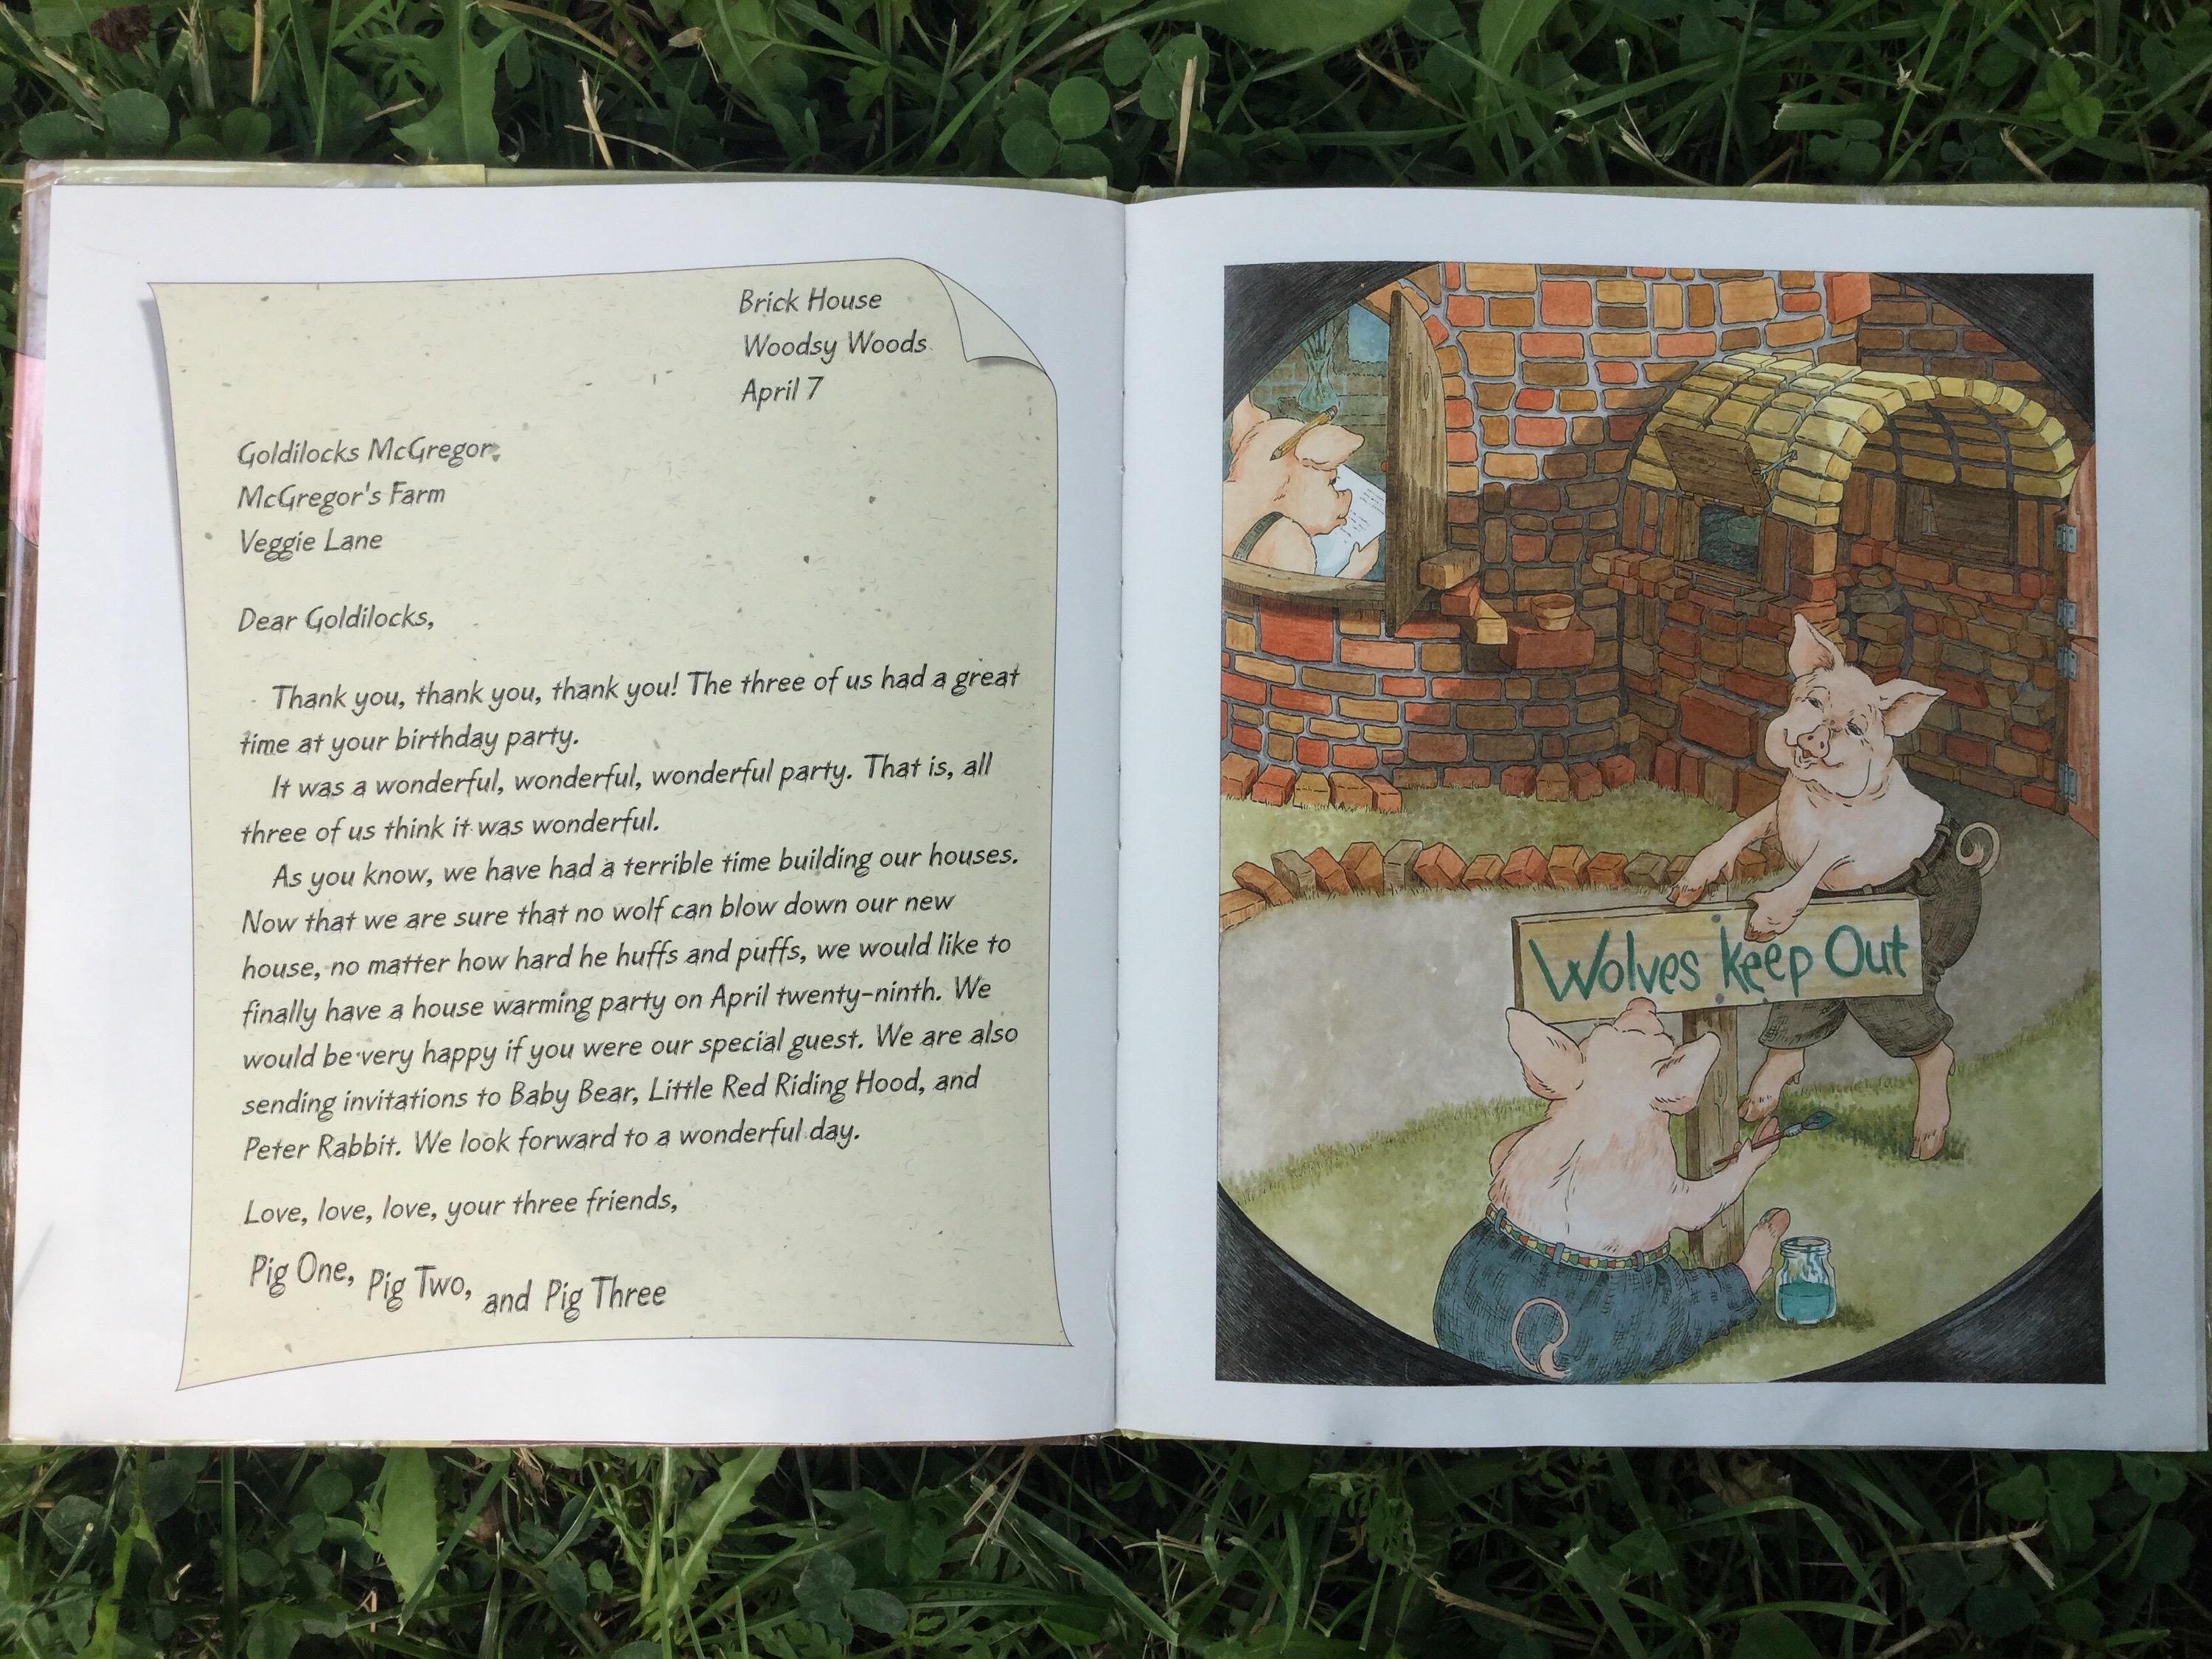 Brick House
Woodsy Woods
April 7
Goldilocks McGregor
McGregor's Farm
Veggie Lane
Dear Goldilocks,
Thank you, thank you, thank you! The three of us had a great
time at your birthday party.
It was a wonderful, wonderful, wonderful party. That is, all
three of us think it was wonderful.
As you know, we have had a terrible time building our houses.
Now that we are sure that no wolf can blow down our new
house, no matter how hard he huffs and puffs, we would like to
finally have a house warming party on April twenty-ninth. We
would be very happy if you were our special guest. We are also
sending invitations to Baby Bear, Little Red Riding Hood, and
Peter Rabbit. We look forward to a wonderful day.
Love, love, love, your three friends,
Pig One, Pig Two, and Pig Three
Wolves Keep Out